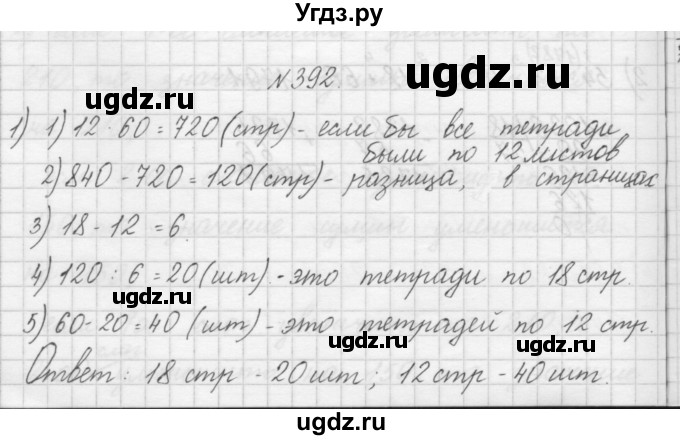 Угдз.ру
№392.
1) 1) 12 · 60 = 720 (стр) - если бы все тетради
были по 12 листов
2) 840 - 720 = 120 (стр) - разница, в страницах
3) 18 - 12 = 6.
4) 120 : 6 = 20 (шт) - это тетради по 18 стр.
5) 60 - 20 = 40 (шт) - это тетрадей по 12 стр.
Ответ: 18 стр - 20 шт; 12 стр - 40 шт.
ugdz.ru
ugdz.ru
ugdz.ru
ugdz.ru
ugdz.ru
ugdz.ru
ugdz.ru